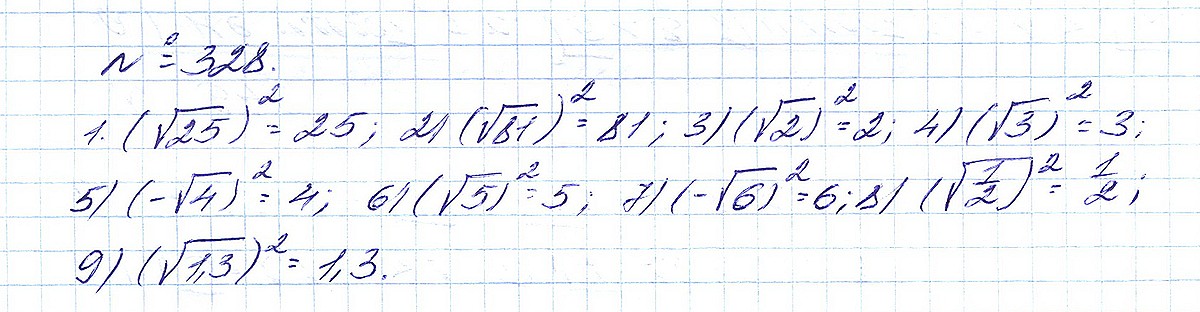 № 328.
1. (√25)² = 25; 2) (√81)² = 81; 3) (√2)² = 2; 4) (√3)² = 3;
5) (-√4)² = 4; 6) (√5)² = 5; 7) (-√6)² = 6; 8) (√1/2)² = 1/2;
9) (√1,3)² = 1,3.